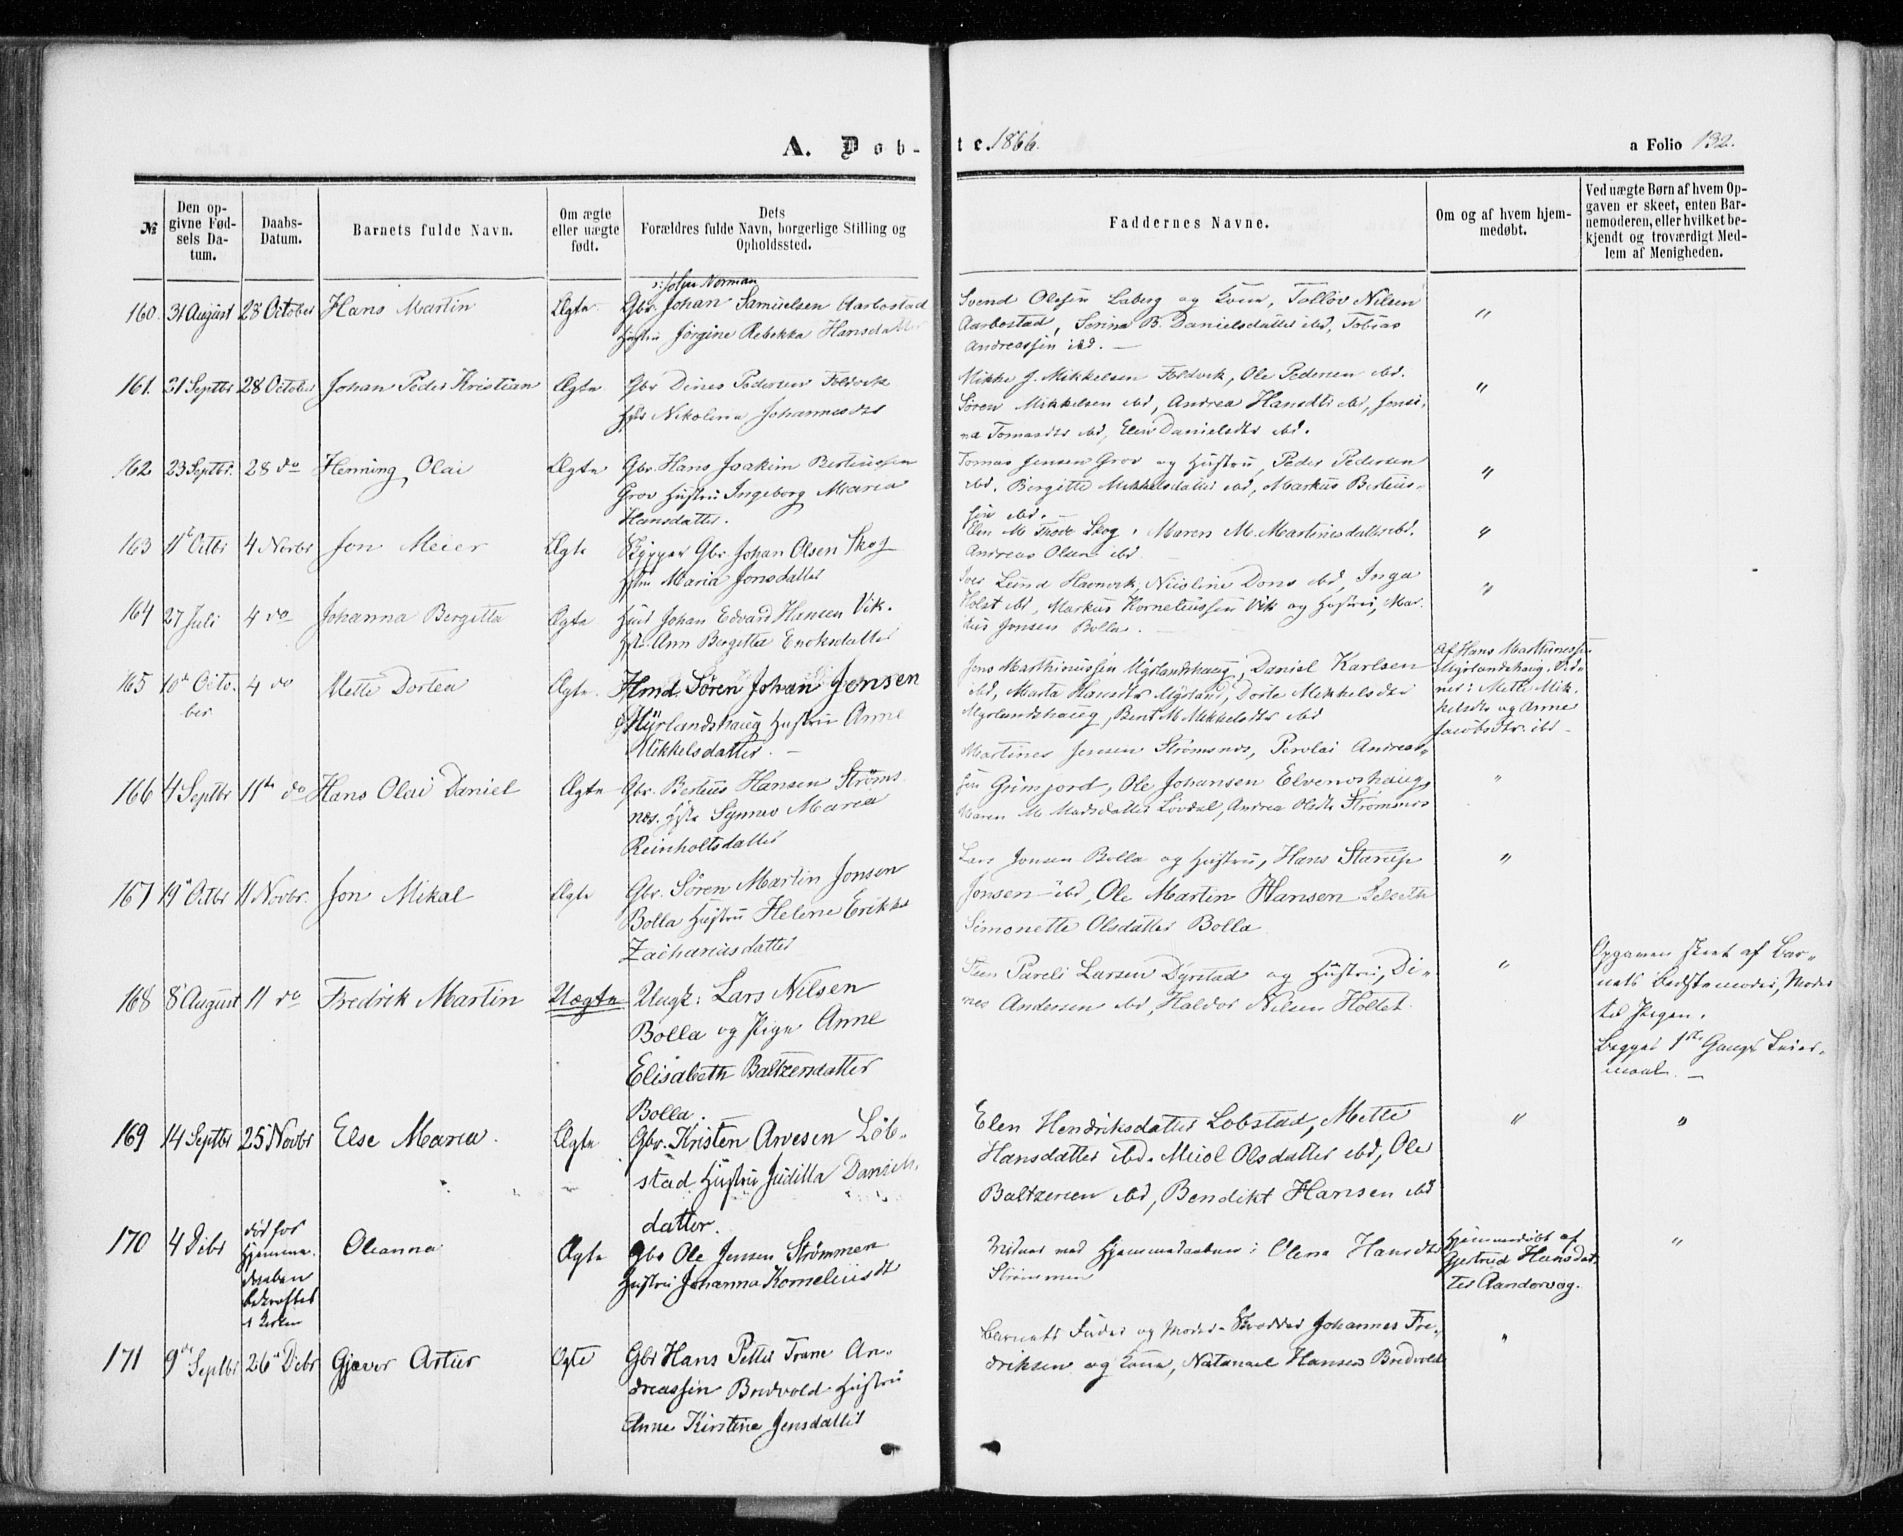 A. Døb-te. 1866.
a Folio 132.
№
Den op-
givne Fød-
sels Da-
tum.
Daabs-
Datum.
Barnets fulde Navn.
Om ægte
eller uægte
født.
Dets
Forældres fulde Navn, borgerlige Stilling og
Opholdssted.
Faddernes Navne.
Om og af hvem hjem-
medøbt.
Ved uægte Børn af hvem Op-
gaven er skeet, enten Bar-
nemoderen, eller hvilket be-
kjendt og troværdigt Med-
lem af Menigheden.
Norman
160. 31 August 28 October Hans Martin Ægte Gbr. Johan Samuelsen Aarbostad
Hustru Jörgine Rebekka Hansdatter
Svend Olssen Laberg og Kone, Tolløv Nilsen
Aarbostad, Serina B. Danielsdatter ibd, Tobias
Andreassen ibd. —
"
161. 21 Septbr 28 October Johan Peder Kristian Ægte Gbr Dines Pedersen Foldvik
Hst Nikolina Johannesdtr
Mikke J. Mikkelsen Foldvik, Ole Pedersen ibd.
Sören Mikkelsen ibd, Andrea Hansdtr ibd, Jensi-
na Tomasdtr ibd, Elen Danielsdtr ibd.
"
162 23 Septbr. 28 do Henning Olai Ægte Gbr. Hans Joakim Berteussen
Grov Hustru Ingeborg Maria
Hansdatter.
Tomas Jensen Grov og Hustru, Peder Pedersen
ibd. Bergitte Mikkelsdatter ibd, Markus Berteus-
sen ibd. —
"
163 11te Octbr 4 Novbr Jon Meier Ægte Skipper Gbr. Johan Olsen Skog
Hstru Maria Jonsdatter
Elen M Thode Skog, Maren M. Martinesdatter ibd.
Andreas Olsen ibd
"
164 27 Juli 4 do Johanna Bergitta Ægte Johan Edvard Hansen Vik.
Hst. Ann Bergitta Enoksdatter
Iver Lund Havnvik, Nicoline Dons ibd, Inga
Holst ibd, Markus Korneliussen Vik og Hustru, Mar-
kus Jonsen Bolla.
"
165 10de Octo-
ber 4 do Mette Dortea Ægte Hmd Sören Johan Jensen
Myrlandshaug Hustru Anne
Mikkelsdatter. —
Jens Marthinussen Myrlandshaug, Daniel Karlsen
ibd, Marta Hansdtr Myrland, Dorte Mikkelsdtr
Myrlandshaug, Berit M Mikkelsdtr ibd
Af Hans Markussen
Myrlandshaug. Vid-
ner: Mette Mik-
kelsdtr og Anne
Jacobsdtr. ibd —
166 4 Septbr 11te do Hans Olai Daniel Ægte Gbr. Berteus Hansen Ströms
nes. Hstr Synnev Maria
Reinholtsdatter
Martines Jensen Strömsnes, Perolai Andreas-
sen Grimjord, Ole Johansen Elvenoshaug
Maren M. Madsdatter Lövdal, Andrea Olsdtr Strömsnes
"
167 19de Octbr 11 Novbr. Jon Mikal Ægte Gbr. Sören Martin Jonsen
Bolla Hustru Helene Erikke
Zachariasdatter
Lars Jonsen Bolla og Hustru, Hans Starup
Jensen ibd, Ole Martin Hansen Selseth
Simonette Olsdatter Bolla.
"
168 8 August 11 do Fredrik Martin Uægte Ungk: Lars Nilsen
Bolla og Pige Anne
Elisabeth Baltzersdatter
Bolla.
Steen Pareli Larsen Dyrstad og Hustru, Di-
nes Andersen ibd, Haldor Nilsen Hollet.
"
Opgaven skeet af Bar-
nets Bedstemoder, Moder
til Pigen.
Begges 1ste Gangs Leier-
maal. —
169 14 Septbr 25 Novbr Else Maria. Ægte Gbr. Kristen Arvesen Löb-
stad Hustru Juditta Daniels-
datter.
Elen Hendriksdatter Lobstad, Mette
Hansdatter ibd. Meiol Olsdatter ibd, Ole
Baltzersen ibd, Bendikt Hansen ibd
" "
170 4 Decbr död før
Hjemme-
daaben
bekræftet
i Kirken Oleanna Ægte Gbr Ole Jensen Strömmen
Hustru Johanna Korneliusdt
Vidner ved Hjemmedaaben: Olena Hansdtr
Strömmen
Hjemmedöbt af
Gjertrud Hansdat-
ter Randervag.
"
171 9de Septbr 26 Decbr Gjæver Artur Ægte Gbr Hans Petter Trane An-
dreassen Bredvold Hustru
Anne Kirstine Jensdatter
Barnets Fader og Moder. Skrædder Johannes Fre-
driksen og Kone, Natanael Hansen Bredvold
"